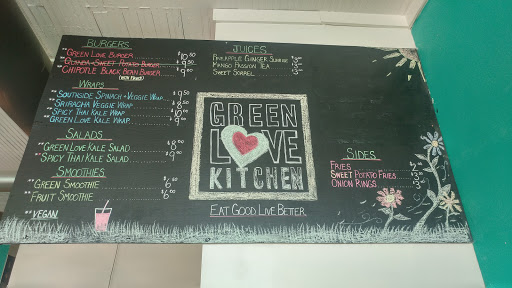 BURGERS
**GREEN LOVE BURGER
**QUINOA + SWEET POTATO BURGER
**CHIPOTLE BLACK BEAN BURGER
WRAPS
**SOUTHSIDE SPINACH + VEGGIE WRAP
**SRIRACHA VEGGIE WRAP
**SPICY THAI KALE WRAP
**GREEN LOVE KALE WRAP
SALADS
**GREEN LOVE KALE SALAD
**SPICY THAI KALE SALAD
SMOOTHIES
**GREEN SMOOTHIE
**FRUIT SMOOTHIE
**VEGAN
JUICES
PINEAPPLE GINGER SUNRISE
MANGO PASSION TEA
SWEET SORREL
GREEN
LOVE
KITCHEN
EAT GOOD LIVE BETTER
SIDES
FRIES
SWEET POTATO FRIES
ONION RINGS